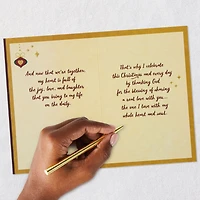 And now that we're together,
my heart is full of
the joy, love, and laughter
that you bring to my life
on the daily.
That's why I celebrate
this Christmas and every day
by thanking God
for the blessing of sharing
a soul love with you...
the one I love with my
whole heart and soul.